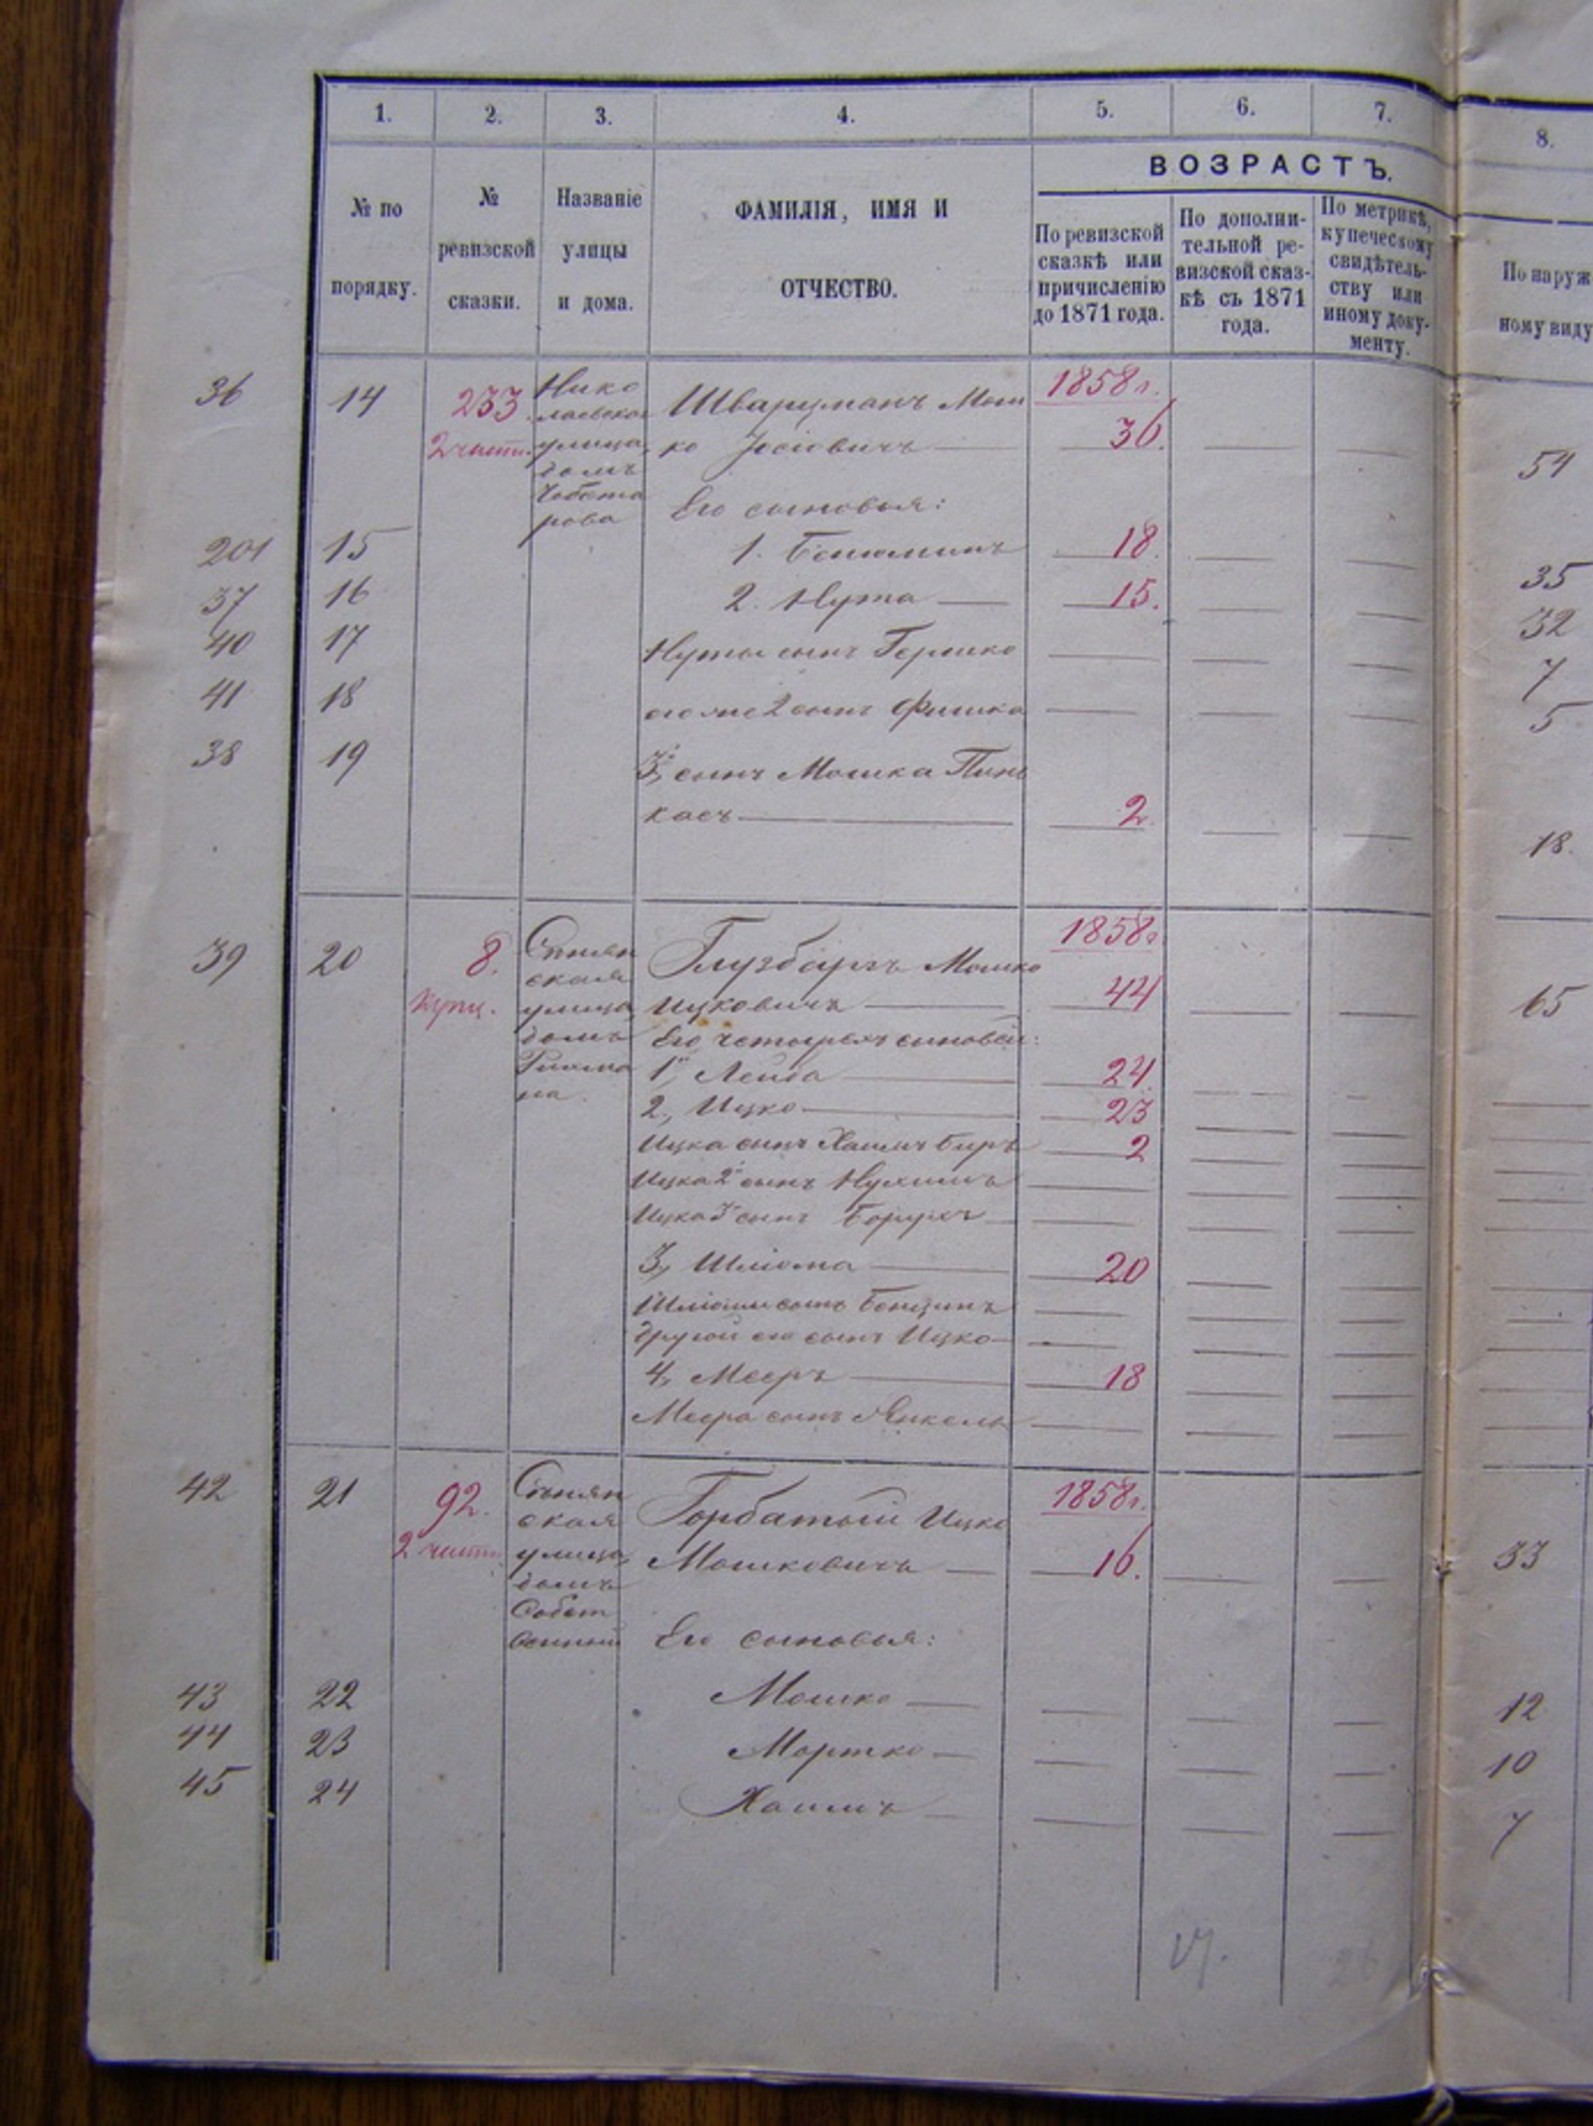 1. 2. 3. 4. 5. 6. 7. 8.
ВОЗРАСТЪ.
№ по порядку.
№ ревизской сказки.
Названіе улицы и дома.
ФАМИЛІЯ, ИМЯ И ОТЧЕСТВО.
По ревизской сказкѣ или причисленію до 1871 года.
По дополнительной ревизской сказкѣ съ 1871 года.
По метрикѣ, купеческому свидѣтельству или иному документу.
По наруж
ному виду
36 14 233 Нико Шварцманъ Мош 1858 г.
2 части лаевская ко Іосіовичъ 36. 54
улица,
домъ
Его сыновья:
рова
201 15 1. Бенюминъ 18. 35
37 16 2. Нута 15. 32
40 17 Нуты сынъ Гершко 7
41 18 его же 2 сынъ Фишка 5
38 19 3й, сынъ Мошка Пинь
касъ 2. 18.
39 20 8. Мошко 1858 г
Купц. ская Ицковичъ 44 65
улица Его четырехъ сыновей:
домъ 1й, Лейба 24.
2, Ицко 23
Ицка сынъ Хаимъ Беръ 2
Ицка 2й сынъ Нухимъ
Ицка 3й сынъ Борухъ
3, Шліома 20
Шліомы сынъ Бенціинъ
другой его сынъ Ицко
4, Мееръ 18
Меера сынъ Янкель
42 21 92. Горбатый Ицко 1858 г.
2 части ская Мошковичъ 16. 33
улица,
домъ
Собст
венный Его сыновья:
43 22 Мошко 12
44 23 Мортко 10
45 24 Хаимъ 7